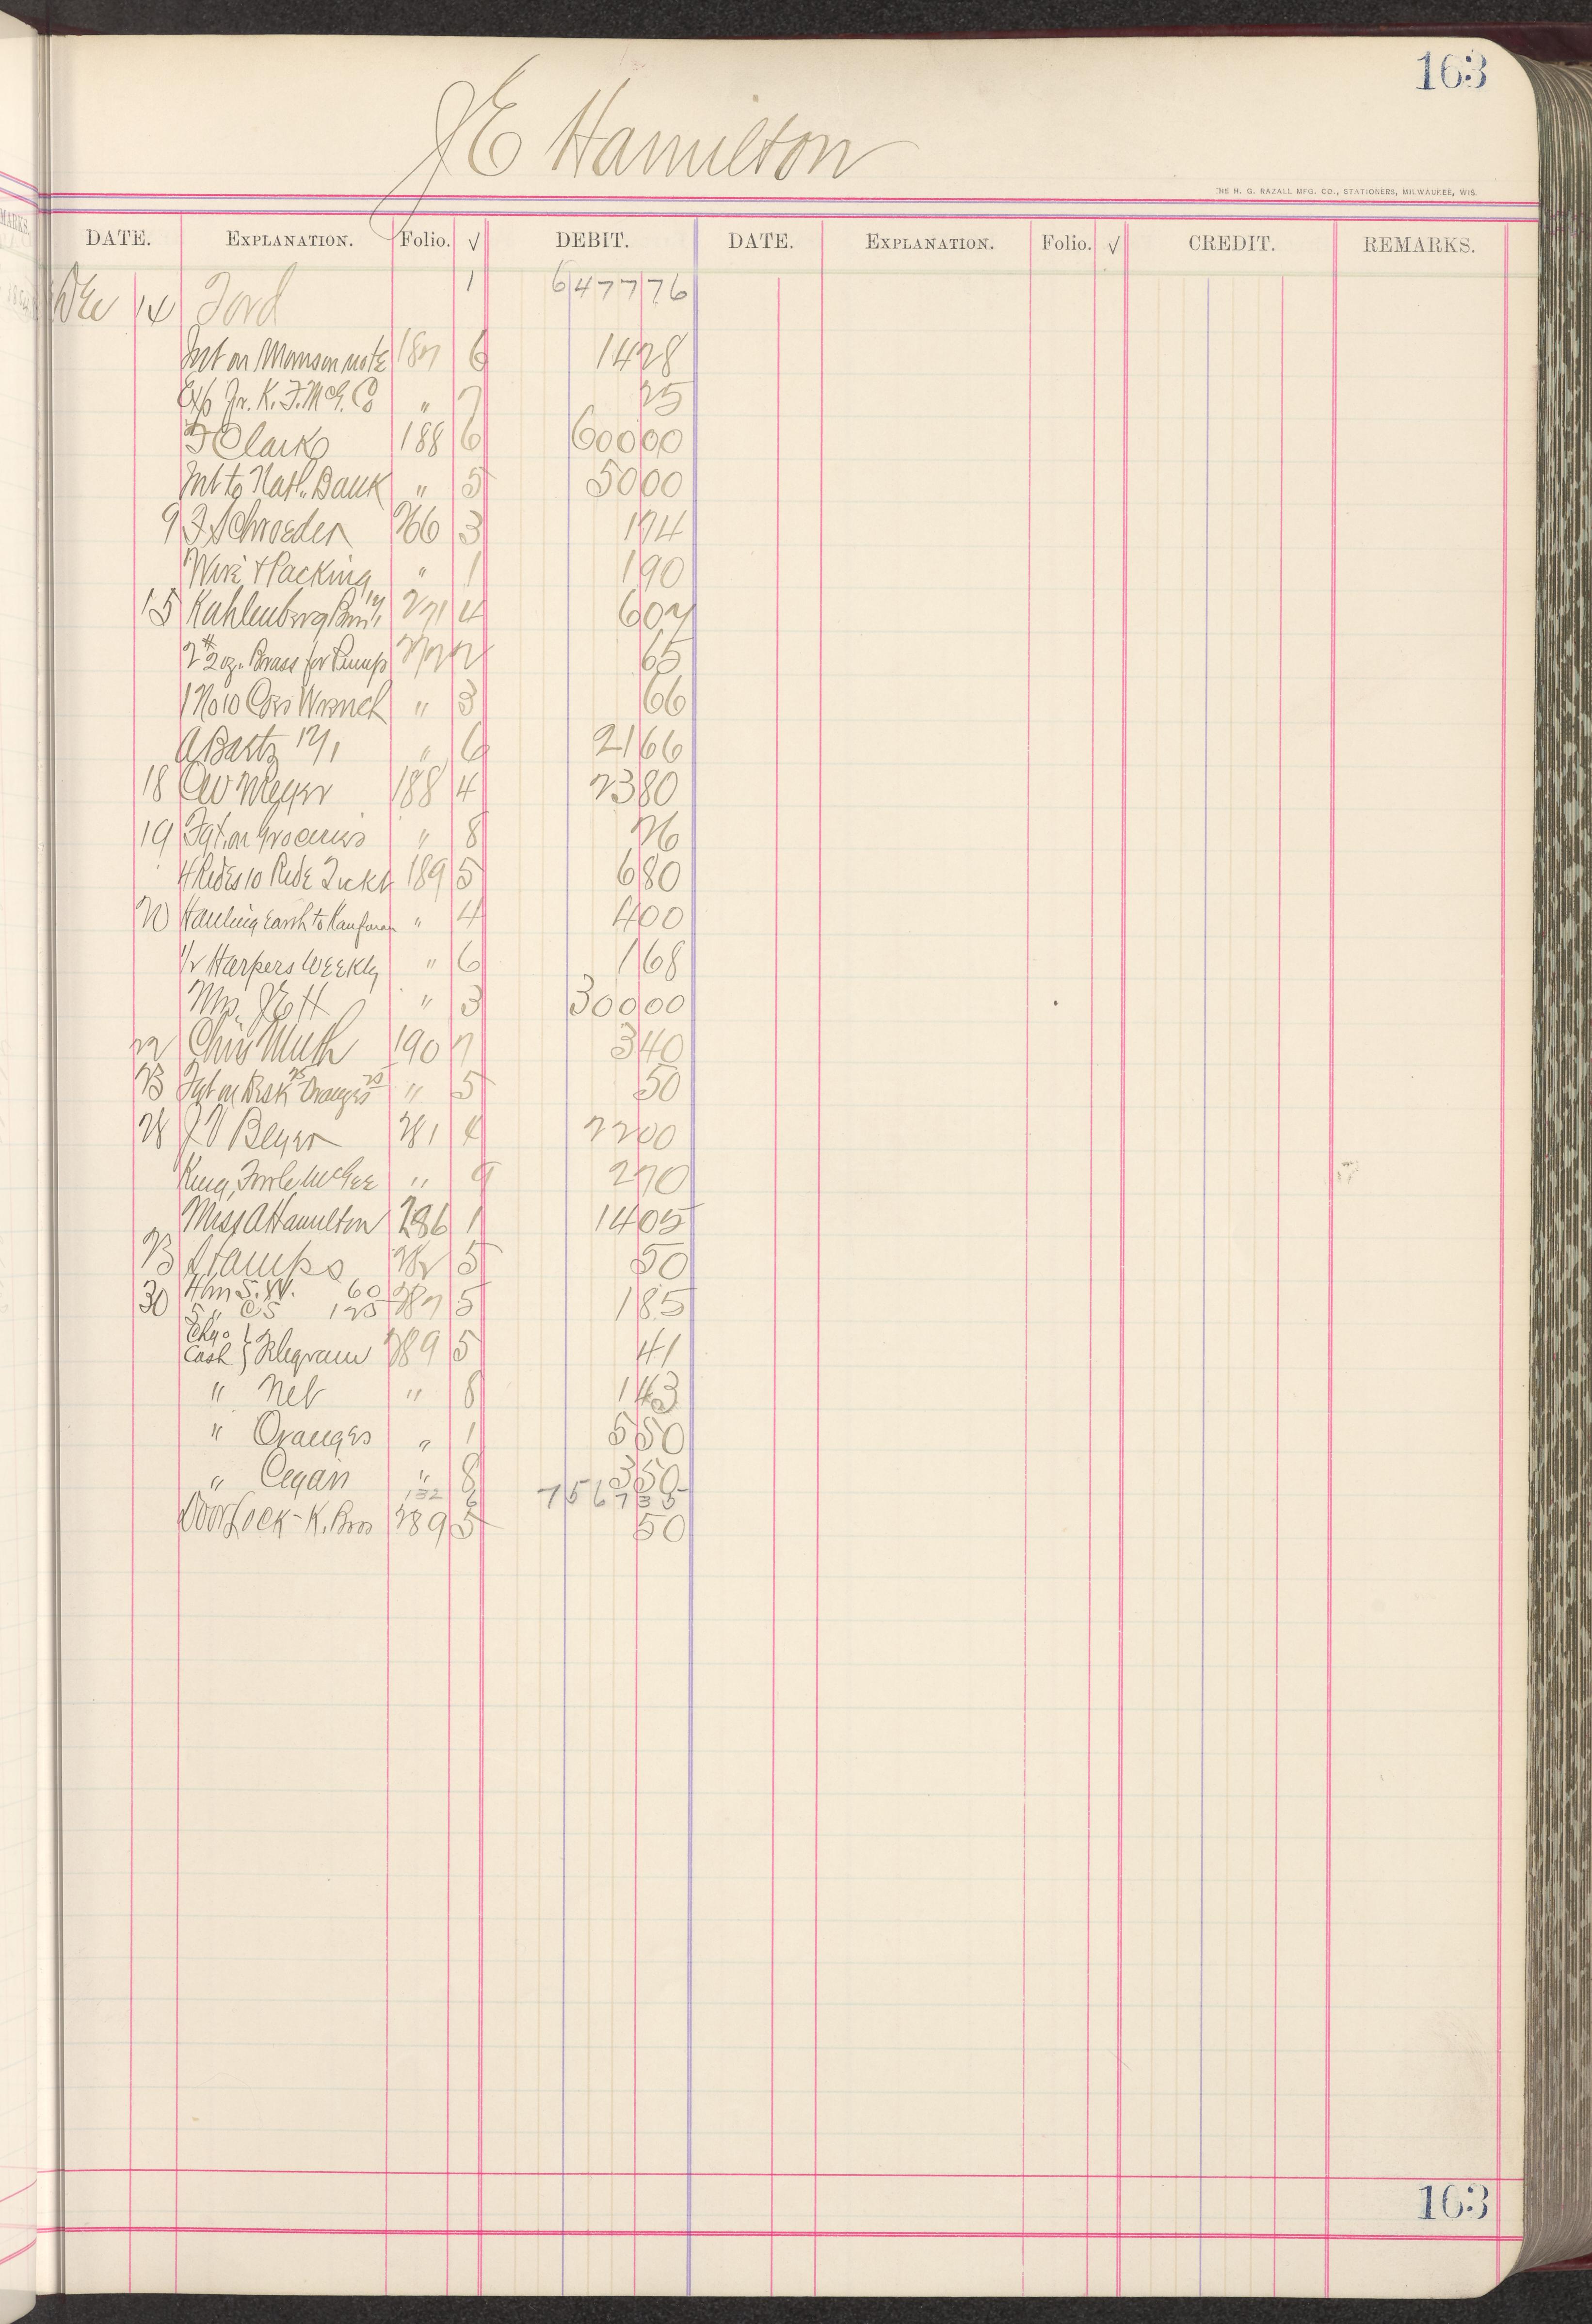 163
J E Hamilton
THE H. G. RAZALL MFG. CO., STATIONERS, MILWAUKEE, WIS.
DATE. EXPLANATION. Folio. √ DEBIT. DATE. EXPLANATION. Folio. √ CREDIT. REMARKS.
Dec 14 Ford 1 6477 76
Int on Monson note 187 6 14 28
Exp Fr. K. F. M'f'g. Co " 7 25
F Clark 188 6 600 00
Int to Natl. Bank " 5 50 00
9 F Schroeder 266 3 1 74
Wire & Packing " 1 1 90
15 Kahlenberg Bros 12/1 271 4 6 02
2# 2 oz. Brass for Pump 272 2 65
1 No 10 Coes Wrench " 3 66
A Bartz 12/1 " 6 21 66
18 CW Meyer 188 4 23 80
19 Fgt. on Groceries " 8 26
4 Rides 10 Ride Ticket 189 5 6 80
20 Hauling Earth to Kaufman " 4 4 00
1/2 Harpers Weekly " 6 1 68
Mrs. J E H " 3 300 00
22 Chris Muth 190 7 3 40
23 Fgt on Desk 25 Oranges 25 " 5 50
28 J V Beyer 281 4 22 00
King, Fowle McGee " 9 2 70
Miss A Hamilton 286 1 14 05
23 Stamps 282 5 50
30 4 hrs S. W. 60
5 " CS 125 287 5 1 85
Chgo
Cash } Telegram 289 5 41
" Net " 8 1 43
" Oranges " 1 5 50
" Cegars " 8 3 50
132 6 7567 35
Door Lock - K. Bros 289 5 50
163